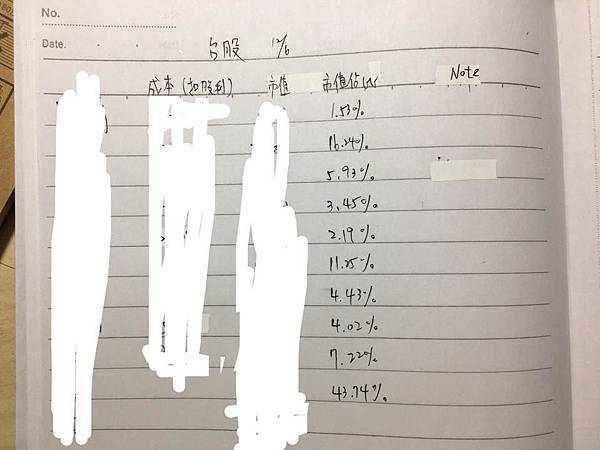 No.
Date.
台股 12/6
成本(扣股利) 市值 市值佔比 Note
1.53%
16.24%
5.93%
3.45%
2.19%
11.25%
4.43%
4.02%
7.22%
43.74%